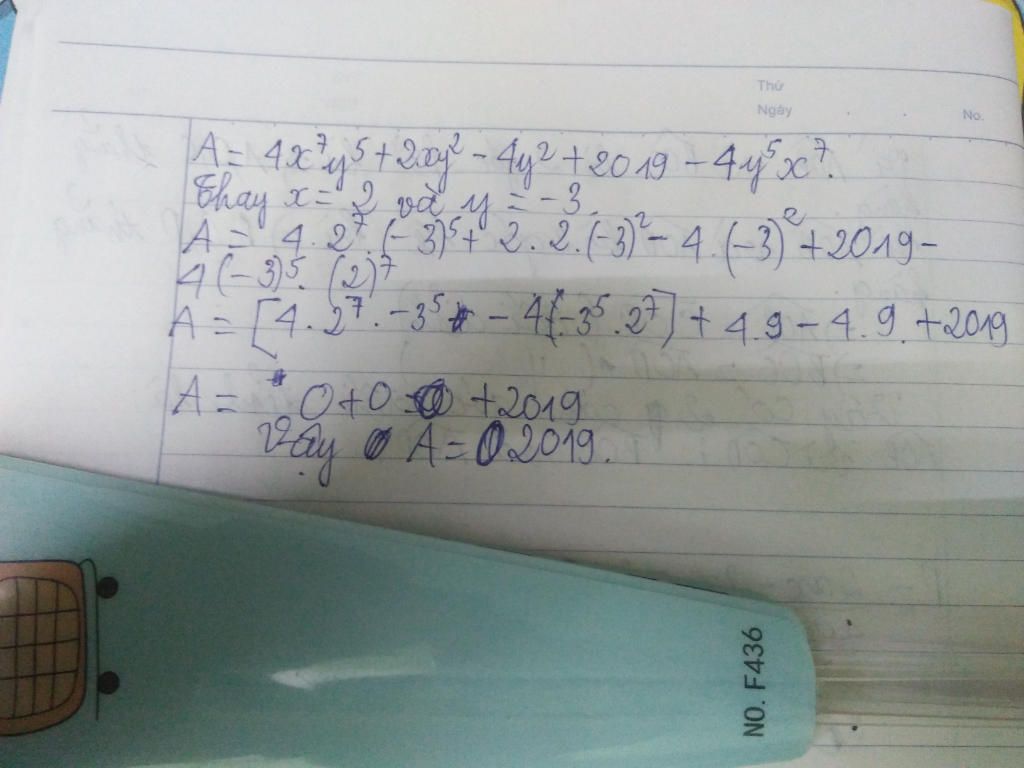 Thứ
Ngày
No.
A = 4x⁷y⁵ + 2xy² - 4y² + 2019 - 4y⁵x⁷.
Thay x = 2 và y = -3.
A = 4 . 2⁷ . (-3)⁵ + 2 . 2 . (-3)² - 4 . (-3)² + 2019 -
4 (-3)⁵ . (2)⁷
A = [4 . 2⁷ . -3⁵ - 4(-3⁵ . 2⁷] + 4.9 - 4.9. + 2019
A = 0 + 0 + 2019
Vậy A = 2019.
NO. F436